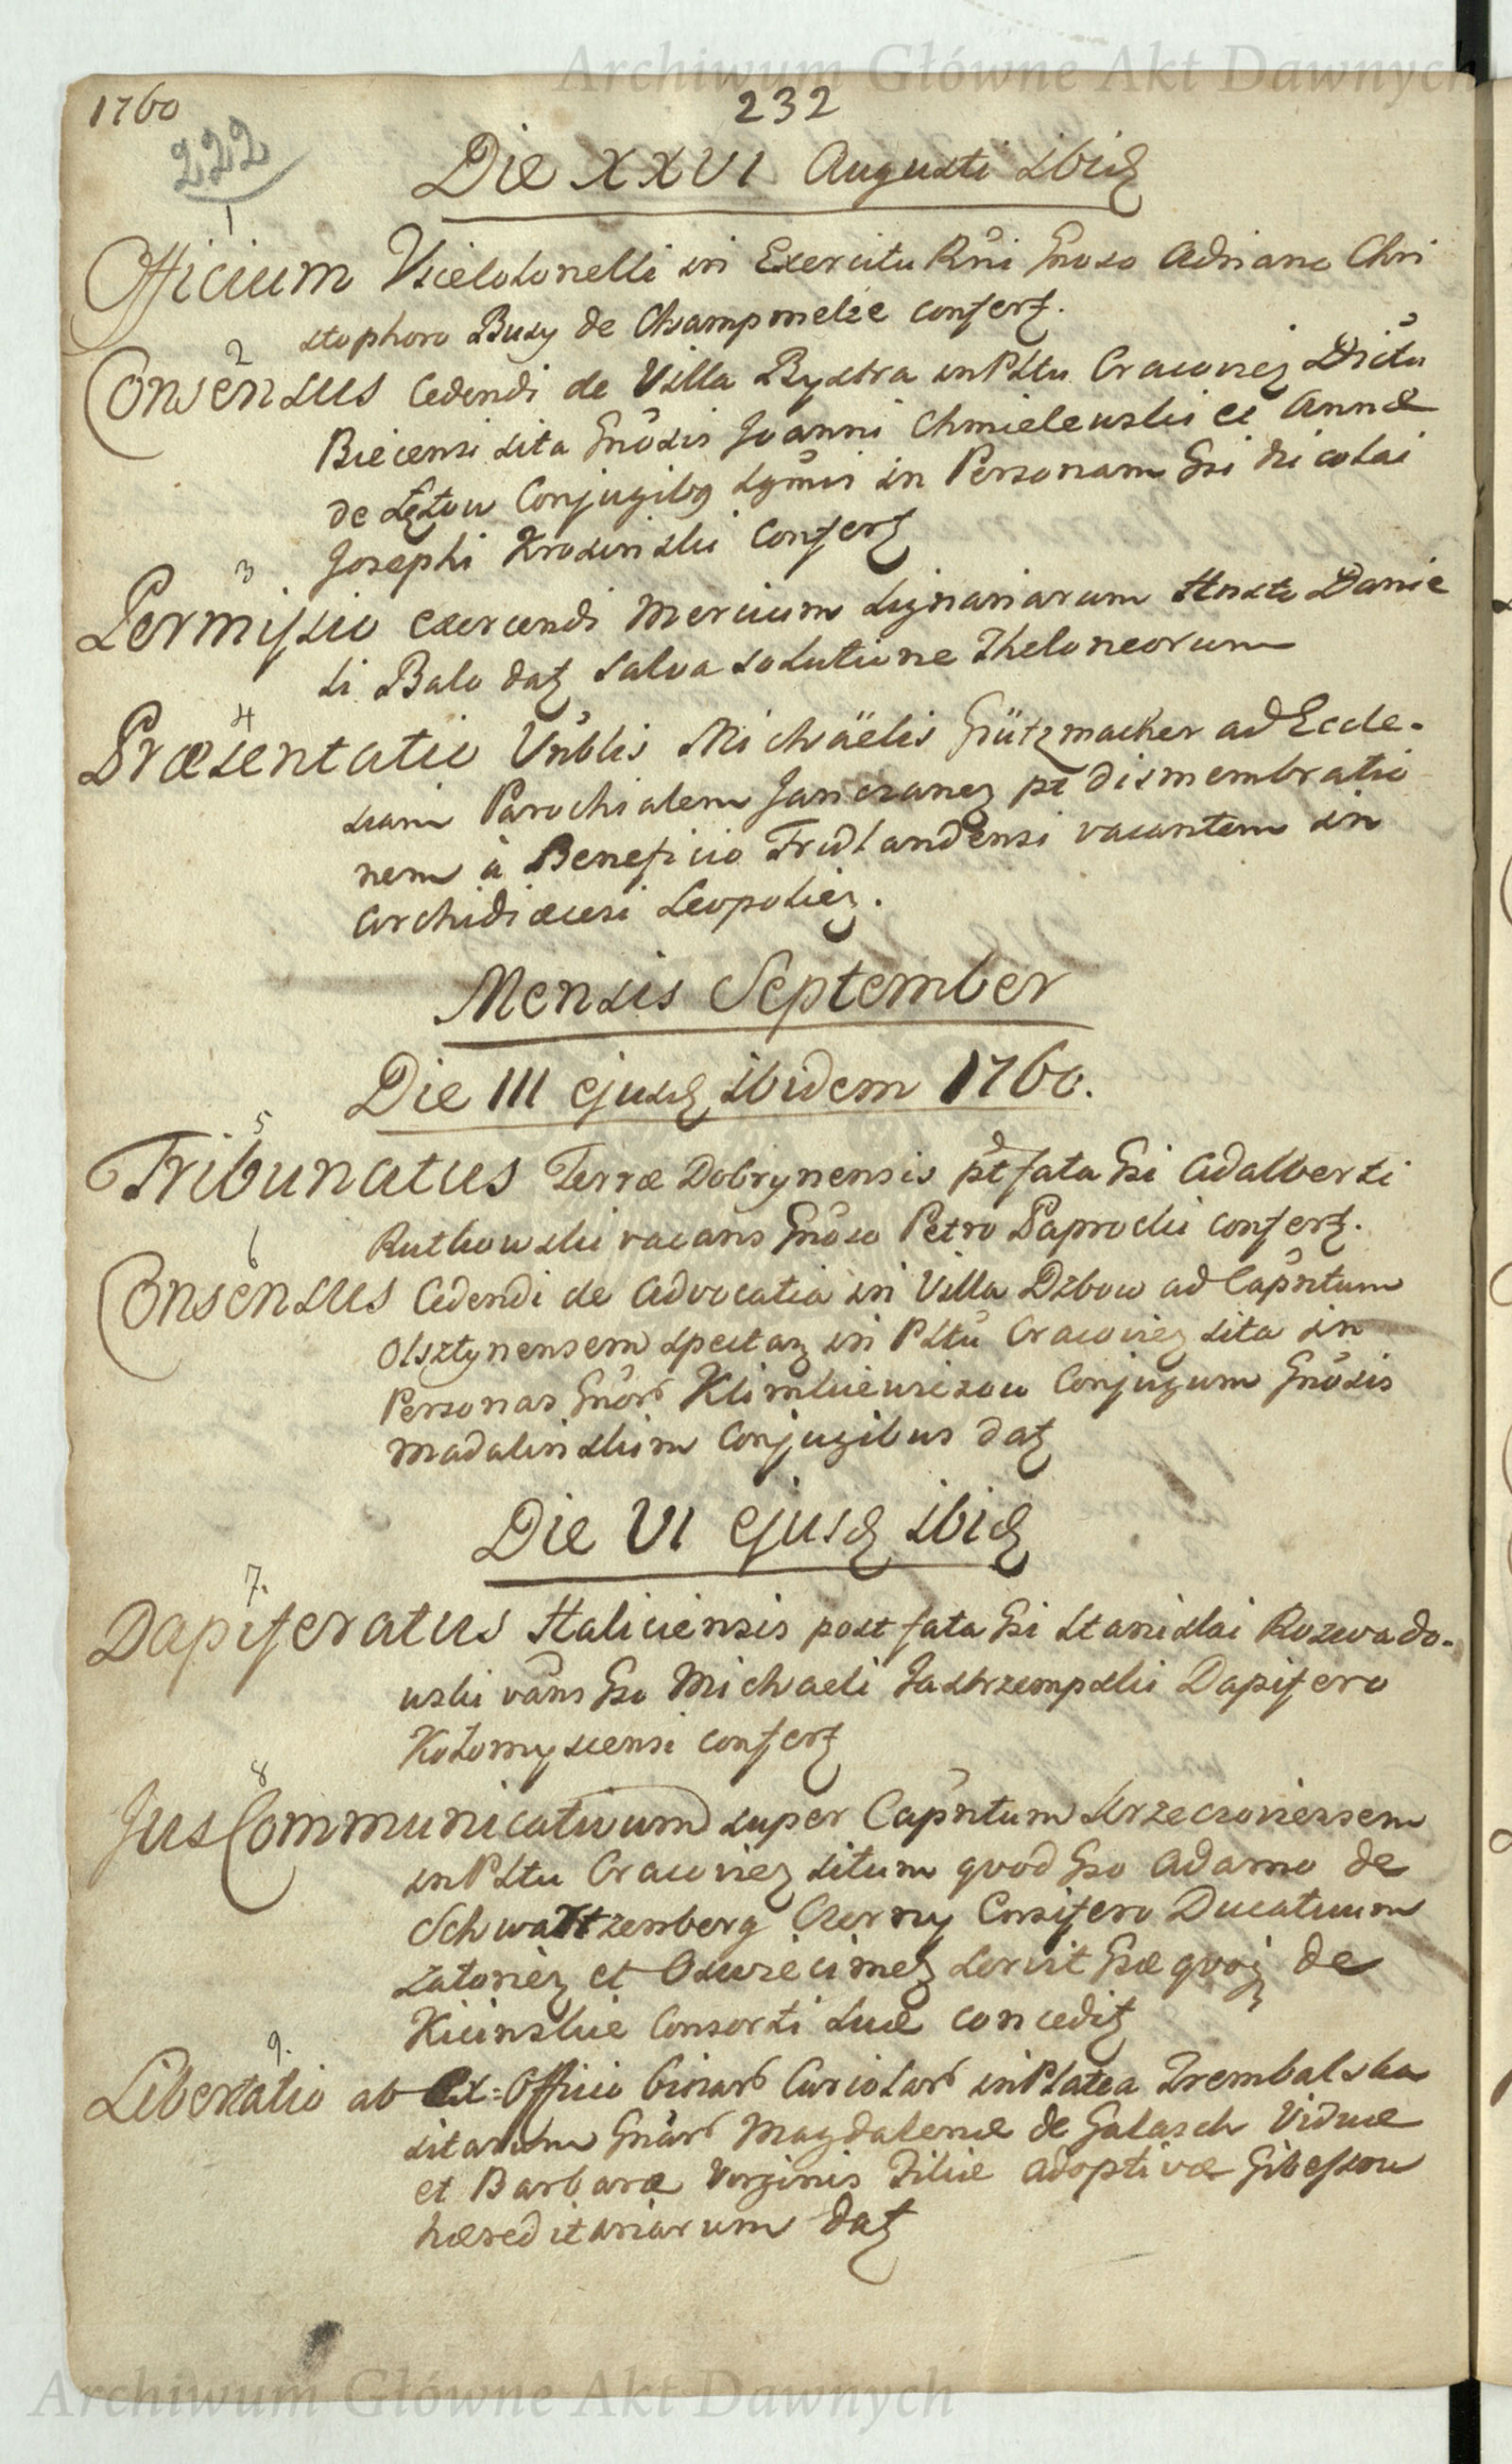 Archiwum Główne Akt Dawnych
1760
232
222
Die XXVI Augusti ibidꝫ
1
Officium Vicelolonelli in Exercitu Rni Gnoso Adriano Chri
stophoro Busy de Champmelse conferꝫ.
2
Consensus cedendi de Villa Bystra in Pltu Cracovieꝫ Dictu
Biecensi sita Gnosis Joanni Chmielewski et Annæ
de Łętow Conjugibꝫ Lgmis in Personam Gsi Nicolai
Josephi Krosinski Conferꝫ
3
Permissio exercendi Mercium Lignariarum Hnsto Danie
li Balo datꝫ salva solutione Theloneorum
4
Præsentatio Vnblis Michäelis Grützmacker ad Eccle-
siam Parochialem Janczaneꝫ pt dismembratio
nem à Beneficio Fridlandensi vacantem in
Archidiæcesi Leopolieꝫ.
Mensis September
Die III ejusdꝫ ibidem 1760.
5
Tribunatus Terræ Dobrynensis pt fata Gsi Adalberti
Rutkowski vacans Gnoso Petro Paprocki conferꝫ.
6
Consensus Cedendi de Advocatia in Villa Dzbow ad Capntum
Olsztynensem spectaꝫ in Pltu Cracovieꝫ sita in
Personas Gnor Klimkiewiczow Conjugum Gnosis
Madalinskim Conjugibus datꝫ
Die VI ejusdꝫ ibidꝫ
7.
Dapiferatus Haliciensis post fata Gsi Stanislai Rozwado-
wski vans Gso Michaeli Jastrzempski Dapifero
Kołomysciensi conferꝫ
8
Jus Communicativum super Capntum Krzeczoviensem
in Pltu Cracovieꝫ situm qvod Gso Adamo de
Schwartzemberg Czerny Ensifero Ducatuum
Zatorieꝫ et Oswiecimeꝫ servit Gsæ qvoꝫ de
Kicinskie Consorti suæ conceditꝫ
9.
Libertatio ab Ex-Officio binar Curiolar in Platea Trembalska
sitarum Gnar Magdalenæ de Galasch Viduæ
et Barbaræ Virginis Filiæ adoptivæ Gibessow
hæreditariarum datꝫ
Archiwum Główne Akt Dawnych